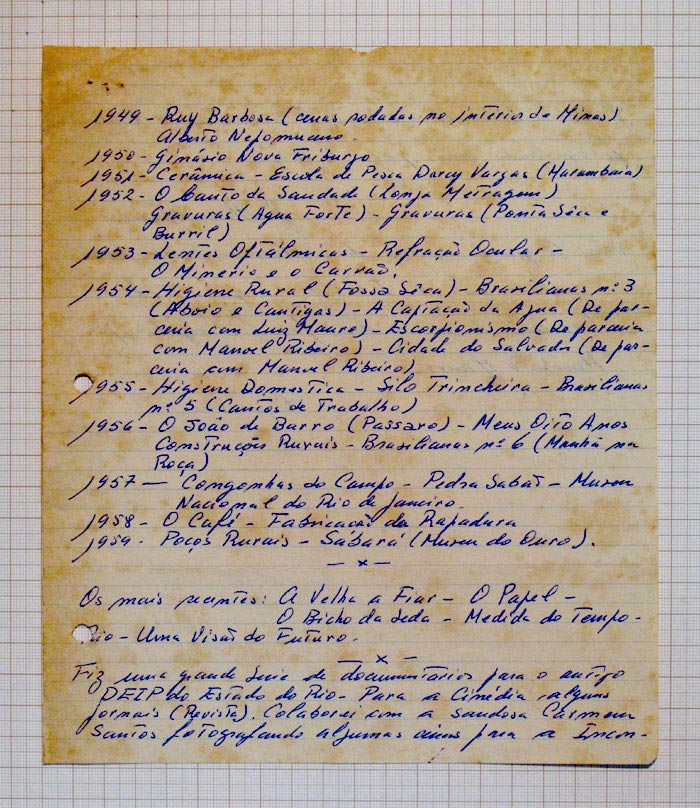 1949 - Ruy Barbosa (cenas rodadas no interior de Minas)
Alberto Nepomuceno.
1950 - Ginásio Nova Friburgo
1951 - Cerâmica - Escola de Pesca Darcy Vargas (Marambaia)
1952 - O Canto da Saudade (Longa Metragem)
Gravuras (Agua Forte) - Gravuras (Ponta Sêca e
Burril)
1953 - Lentes Oftálmicas - Refração Ocular -
O Minerio e o Carvão.
1954 - Higiene Rural (Fossa Sêca) - Brasilianas nº 3
(Aboio e Cantigas) - A Captação da Agua (De par-
ceria com Luiz Mauro) - Escorpionismo (De parceria
com Manoel Ribeiro) - Cidade do Salvador (De par-
ceria com Manoel Ribeiro)
1955 - Higiene Domestica - Silo Trincheira - Brasilianas
nº 5 (Cantos de Trabalho)
1956 - O João de Barro (Passaro) - Meus Oito Anos
Construções Rurais - Brasilianas nº 6 (Manhã na
Roça)
1957 - Congonhas do Campo - Pedra Sabão - Museu
Nacional do Rio de Janeiro.
1958 - O Café - Fabricação da Rapadura
1959 - Poços Rurais - Sabará (Museu do Ouro).
- x -
Os mais recentes: A Velha a Fiar - O Papel -
O Bicho da Seda - Medida do Tempo -
Rio - Uma Visão do Futuro.
- x -
Fiz uma grande serie de documentarios para o antigo
DEIP do Estado do Rio - Para a Cinédia alguns
jornais (Revista). Colaborei com a saudosa Carmen
Santos fotografando algumas cenas para a Incon-